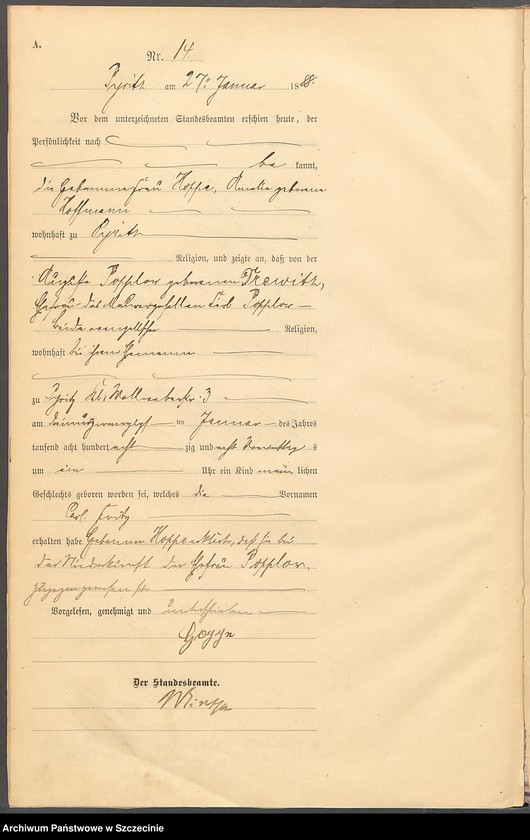 A.
Nr. 14.
Pyritz am 27. Januar 1888.
Vor dem unterzeichneten Standesbeamten erschien heute, der
Persönlichkeit nach
be kannt,
die Hebamme Frau Hoppe, Amalie geborene
Hoffmann
wohnhaft zu Pyritz
Religion, und zeigte an, daß von der
Auguste Popplow geborenen Trewitz,
Ehefrau des Carl Popplow
beide evangelischer Religion,
wohnhaft bei ihrem Ehemann
zu Pyritz 3
am Januar des Jahres
tausend acht hundert acht zig und acht Vormittag s
um ein Uhr ein Kind männ lichen
Geschlechts geboren worden sei, welches die Vornamen
Carl Fritz
erhalten habe. Hebamme Hoppe erklärte, daß sie bei
der Niederkunft der Ehefrau Popplow
zugegen gewesen sei
Vorgelesen, genehmigt und unterschrieben
Hoppe
Der Standesbeamte.
Archiwum Państwowe w Szczecinie